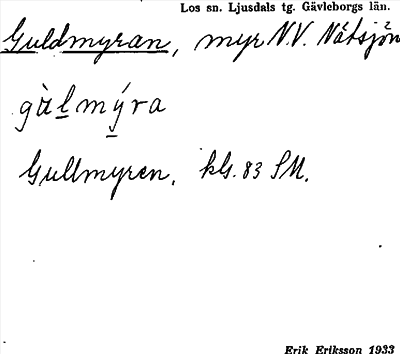 Los sn. Ljusdals tg. Gävleborgs län.
Guldmyran, myr N.V. Nätsjön
gàlmýra
Gullmyren, kls. 83 SM.
Erik Eriksson 1933